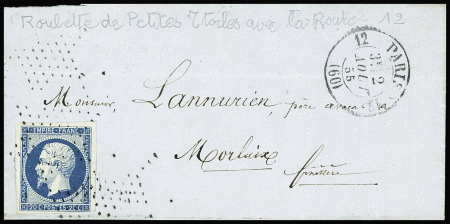 Roulette de Petites Etoiles avec la Route 12
12
PARIS
3E 2
AOUT
55
(60)
Monsieur Lannurien, père avocat
Morlaix
finistère
EMPIRE FRANC
20 C POSTES 20 C